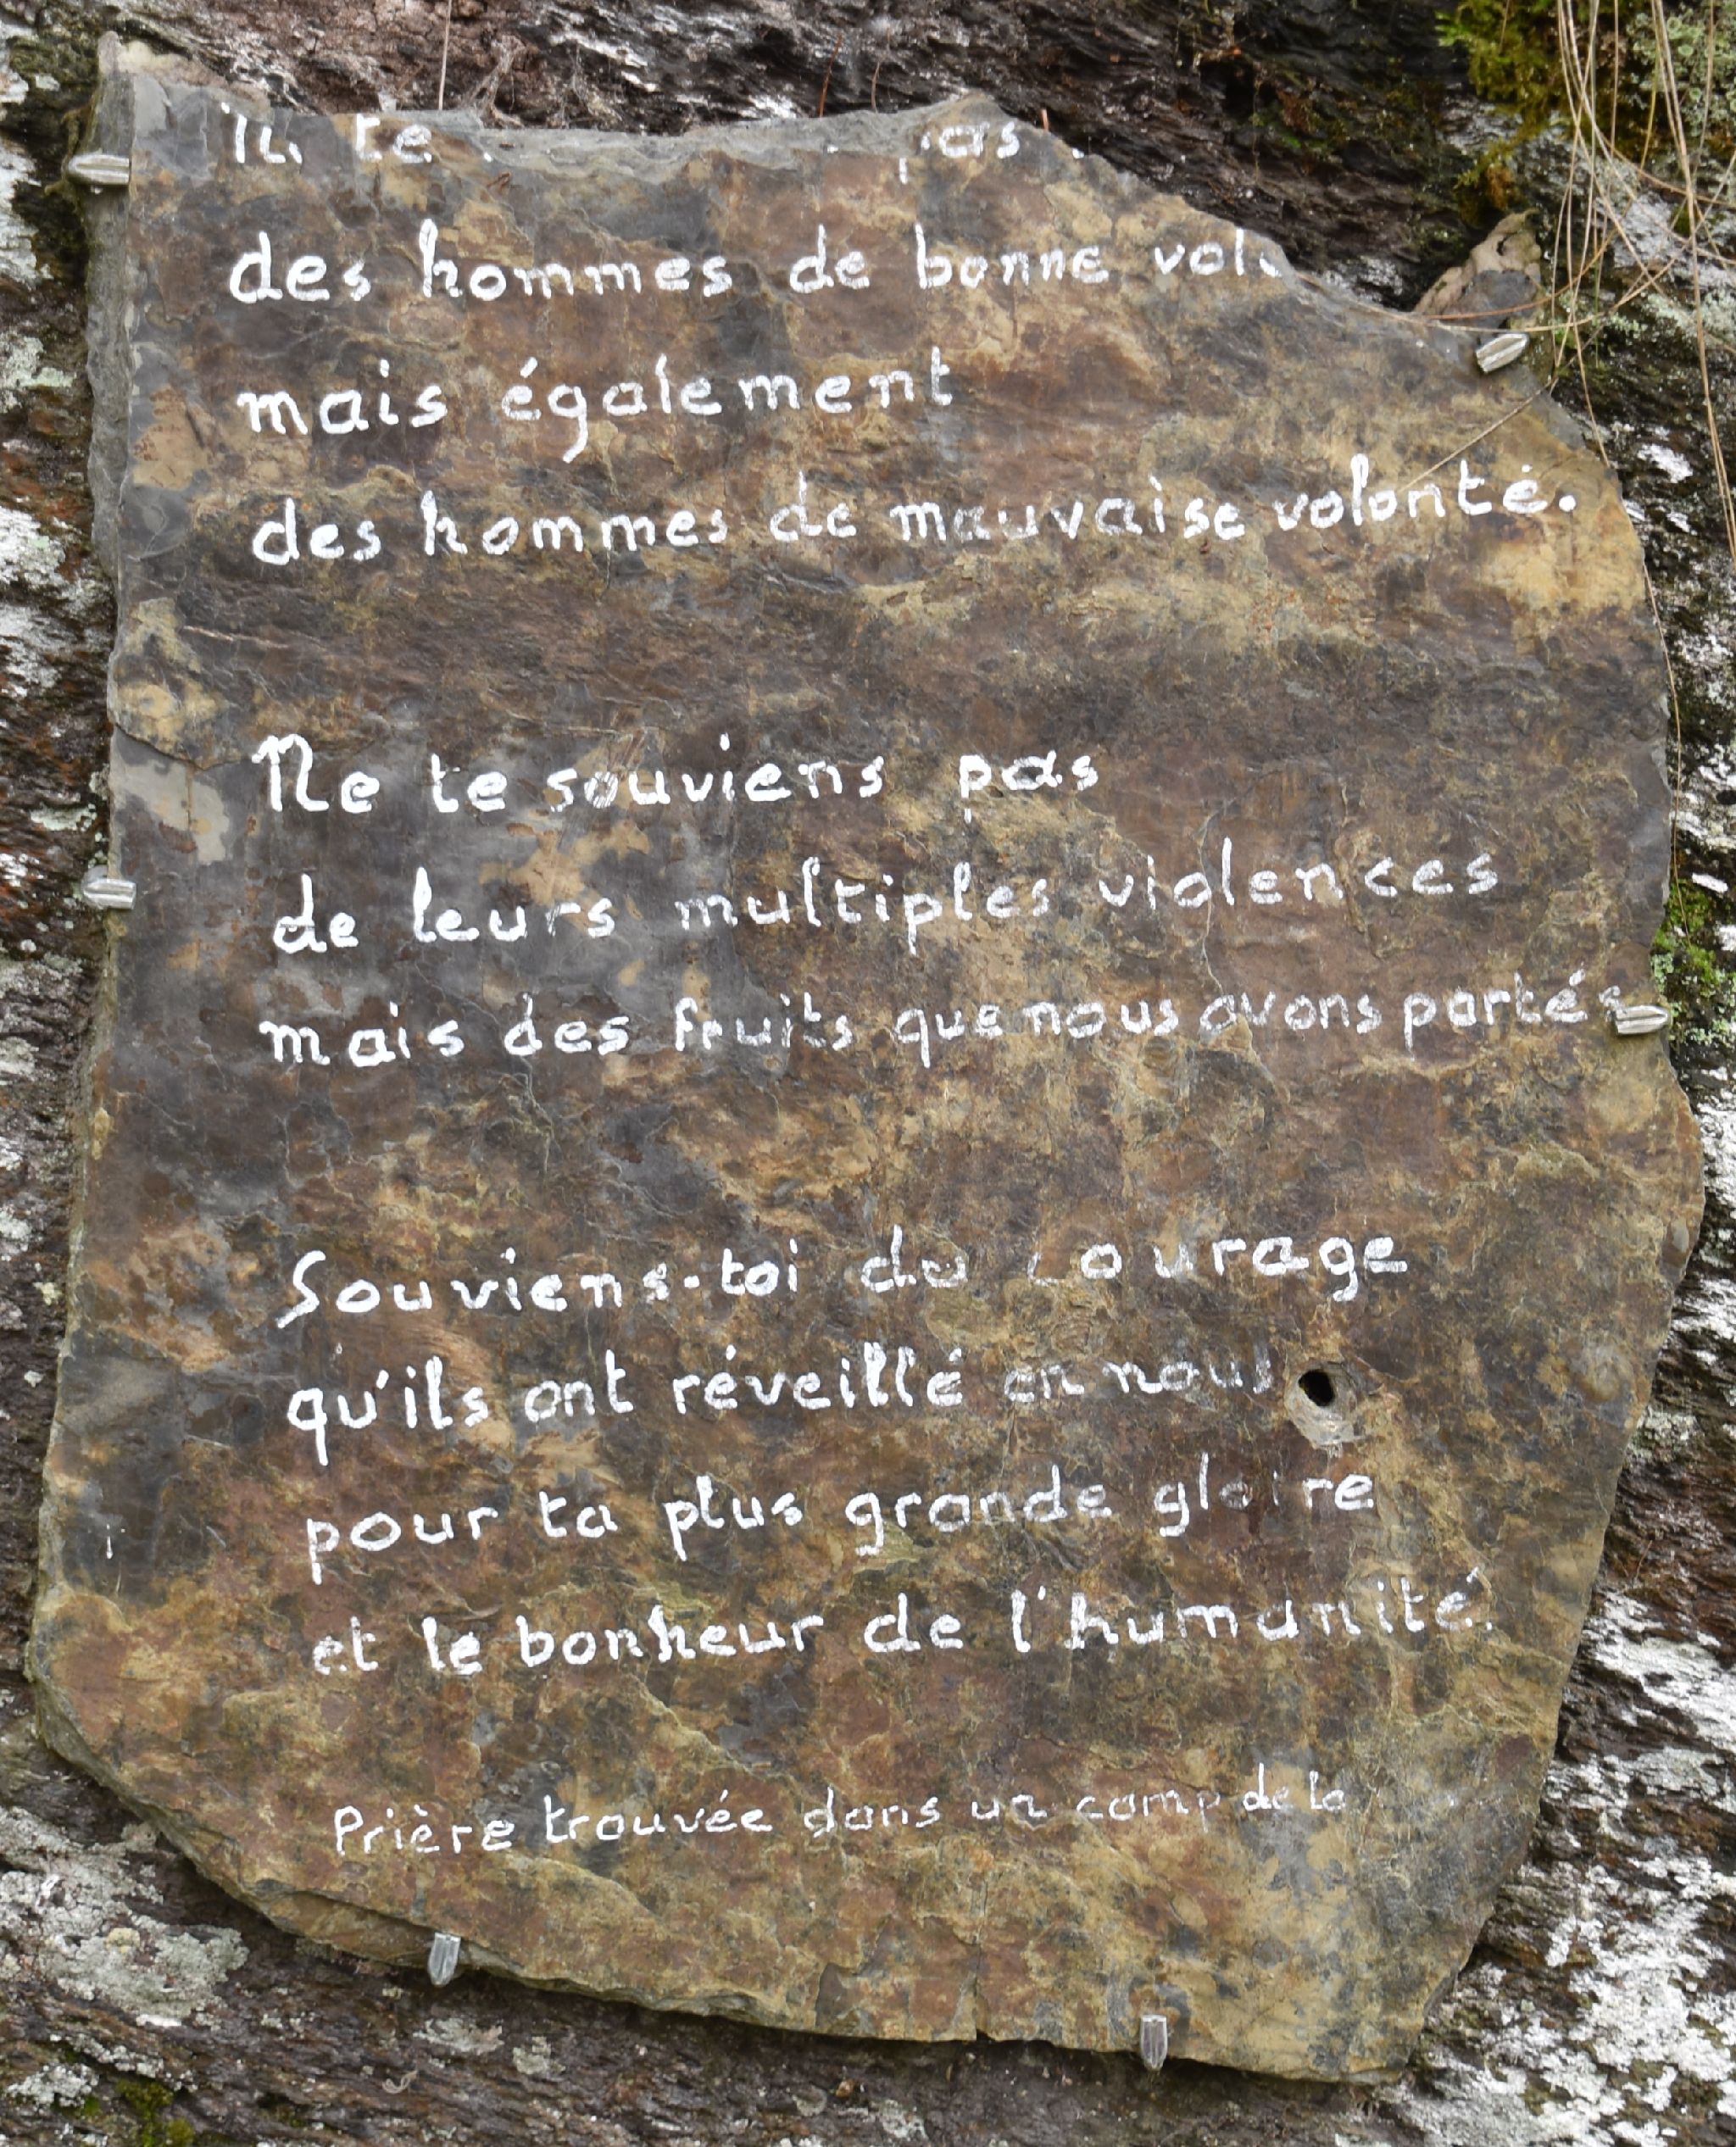 te pas
des hommes de bonne
mais également
des hommes de mauvaise volonté.
Ne te souviens pas
de leurs multiples violences
mais des fruits que nous avons portés
Souviens-toi du courage
qu'ils ont réveillé en nous
pour ta plus grande gloire
et le bonheur de l'humanité.
Prière trouvée dans un camp de la